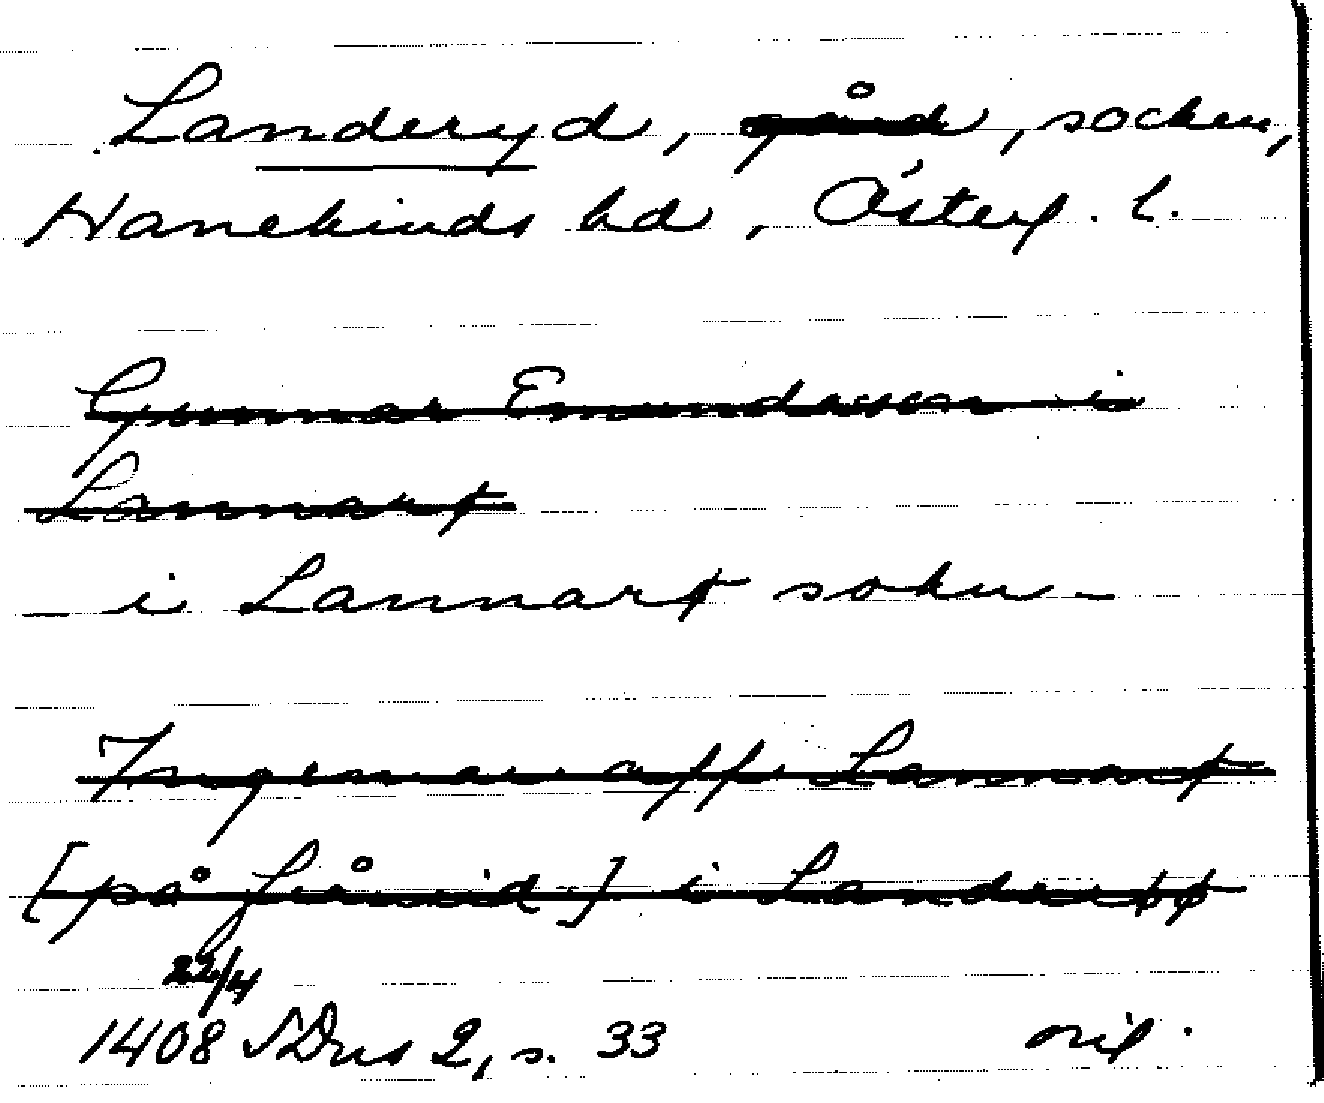 Landeryd, gård, socken,
Hanekinds hd, Österg. l.
Gunnar Emundasson i
Lannarþ
– i Lannarþ sokn –
Ingemar aff Lannarþ
[på frånsid] i Landeruþþ
22/4
1408 SDns 2, s. 33 orig.